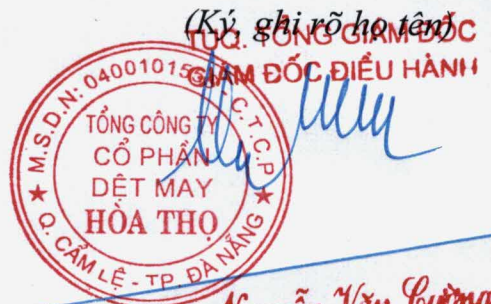 (Ký, ghi rõ họ tên)
TUQ. TỔNG GIÁM ĐỐC
GIÁM ĐỐC ĐIỀU HÀNH
M.S.D.N: 04001015 C.T.C.P
TỔNG CÔNG TY
CỔ PHẦN
DỆT MAY
HÒA THỌ
★ Q. CẨM LỆ - TP. ĐÀ NẴNG ★
Nguyễn Văn Cường